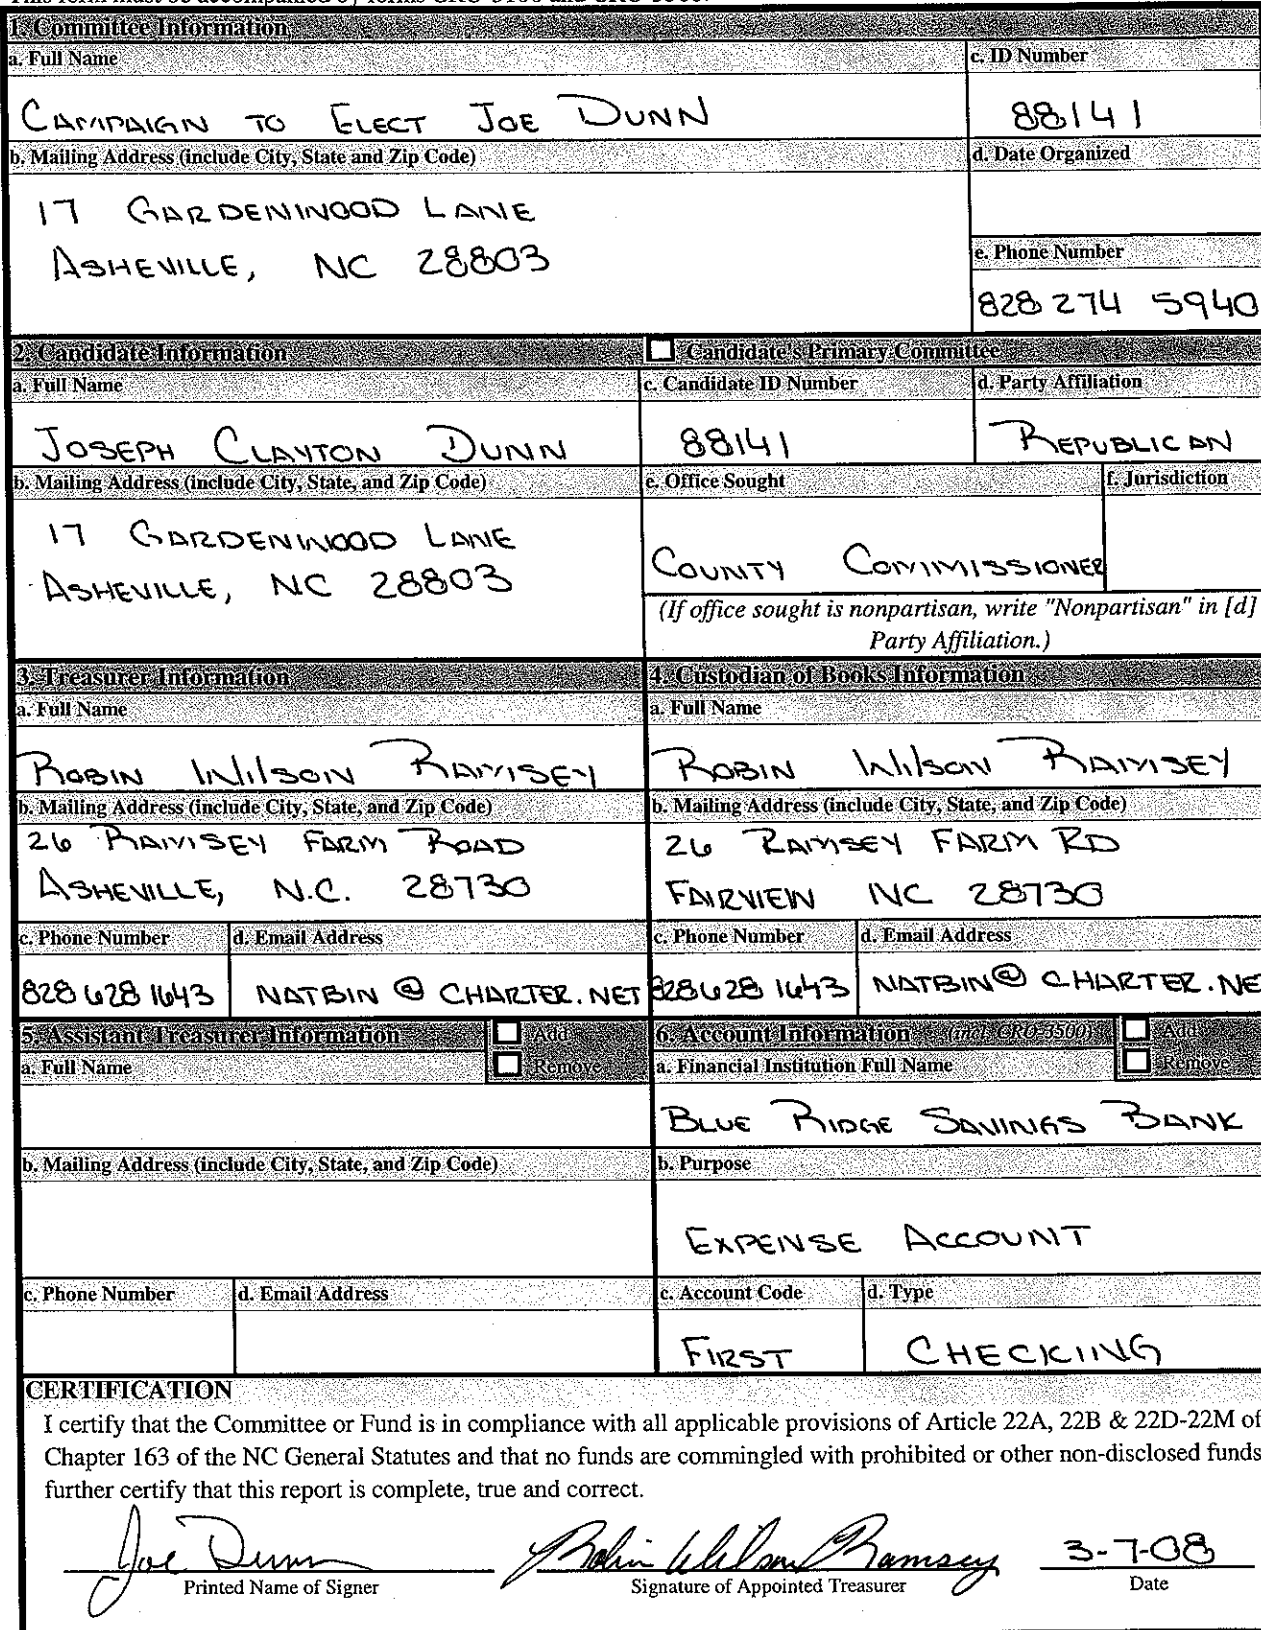 1. Committee Information
a. Full Name
c. ID Number
CAMPAIGN TO ELECT JOE DUNN
88141
b. Mailing Address (include City, State and Zip Code)
d. Date Organized
17 GARDENWOOD LANE
ASHEVILLE, NC 28803
e. Phone Number
828 274 5940
2. Candidate Information
Candidate's Primary Committee
a. Full Name
c. Candidate ID Number
d. Party Affiliation
JOSEPH CLAYTON DUNN
88141
REPUBLICAN
b. Mailing Address (include City, State, and Zip Code)
e. Office Sought
f. Jurisdiction
17 GARDENWOOD LANE
ASHEVILLE, NC 28803
COUNTY COMMISSIONER
(If office sought is nonpartisan, write "Nonpartisan" in [d]
Party Affiliation.)
3. Treasurer Information
a. Full Name
ROBIN WILSON RAMSEY
b. Mailing Address (include City, State, and Zip Code)
26 RAMSEY FARM ROAD
ASHEVILLE, N.C. 28730
c. Phone Number
d. Email Address
828 628 1643
NATBIN @ CHARTER.NET
4. Custodian of Books Information
a. Full Name
ROBIN WILSON RAMSEY
b. Mailing Address (include City, State, and Zip Code)
26 RAMSEY FARM RD
FAIRVIEW NC 28730
c. Phone Number
d. Email Address
828 628 1643
NATBIN@ CHARTER.NE
5. Assistant Treasurer Information
Add
Remove
a. Full Name
b. Mailing Address (include City, State, and Zip Code)
c. Phone Number
d. Email Address
6. Account Information (incl. CRO-3500)
Add
Remove
a. Financial Institution Full Name
BLUE RIDGE SAVINGS BANK
b. Purpose
EXPENSE ACCOUNT
c. Account Code
d. Type
FIRST
CHECKING
CERTIFICATION
I certify that the Committee or Fund is in compliance with all applicable provisions of Article 22A, 22B & 22D-22M of
Chapter 163 of the NC General Statutes and that no funds are commingled with prohibited or other non-disclosed funds
further certify that this report is complete, true and correct.
Joe Dunn
Robin Wilson Ramsey
3-7-08
Printed Name of Signer
Signature of Appointed Treasurer
Date